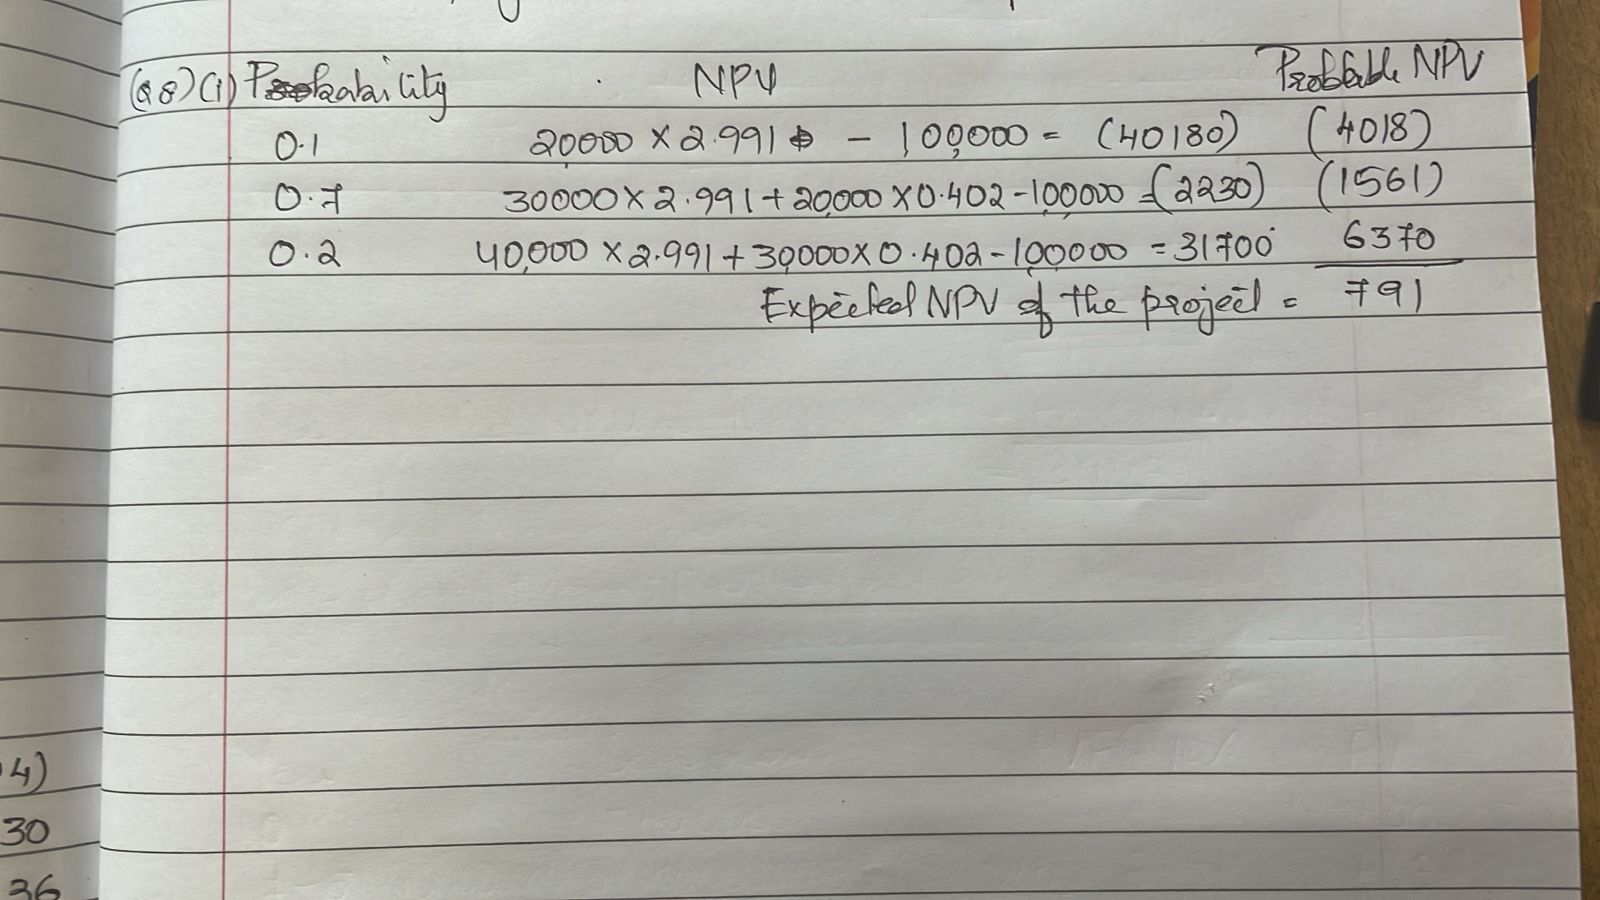 (Q8)(i) Probability NPV Probable NPV
0.1 20,000 × 2.991 - 100,000 = (40180) (4018)
0.7 30000 × 2.991 + 20,000 × 0.402 - 100,000 = (2230) (1561)
0.2 40,000 × 2.991 + 30,000 × 0.402 - 100,000 = 31700 6370
Expected NPV of the project = 791
4)
30
36